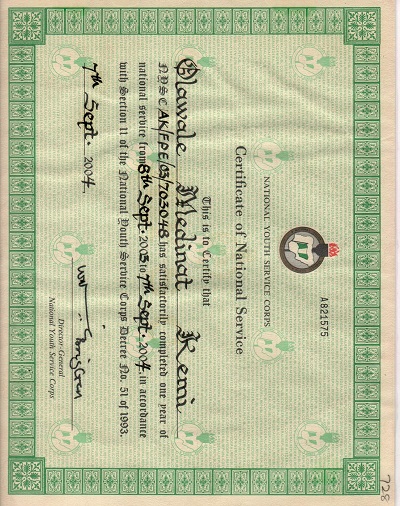 A821575
NATIONAL YOUTH SERVICE CORPS
Certificate of National Service
This is to Certify that
Olawale Medinat Kemi
NYSC/AK/FPE/03/703048 has satisfactorily completed one year of
national service from 8th Sept. 2003 to 7th Sept. 2004, in accordance
with Section 11 of the National Youth Service Corps Decree No. 51 of 1993.
7th Sept. 2004.
Director General
National Youth Service Corps
728